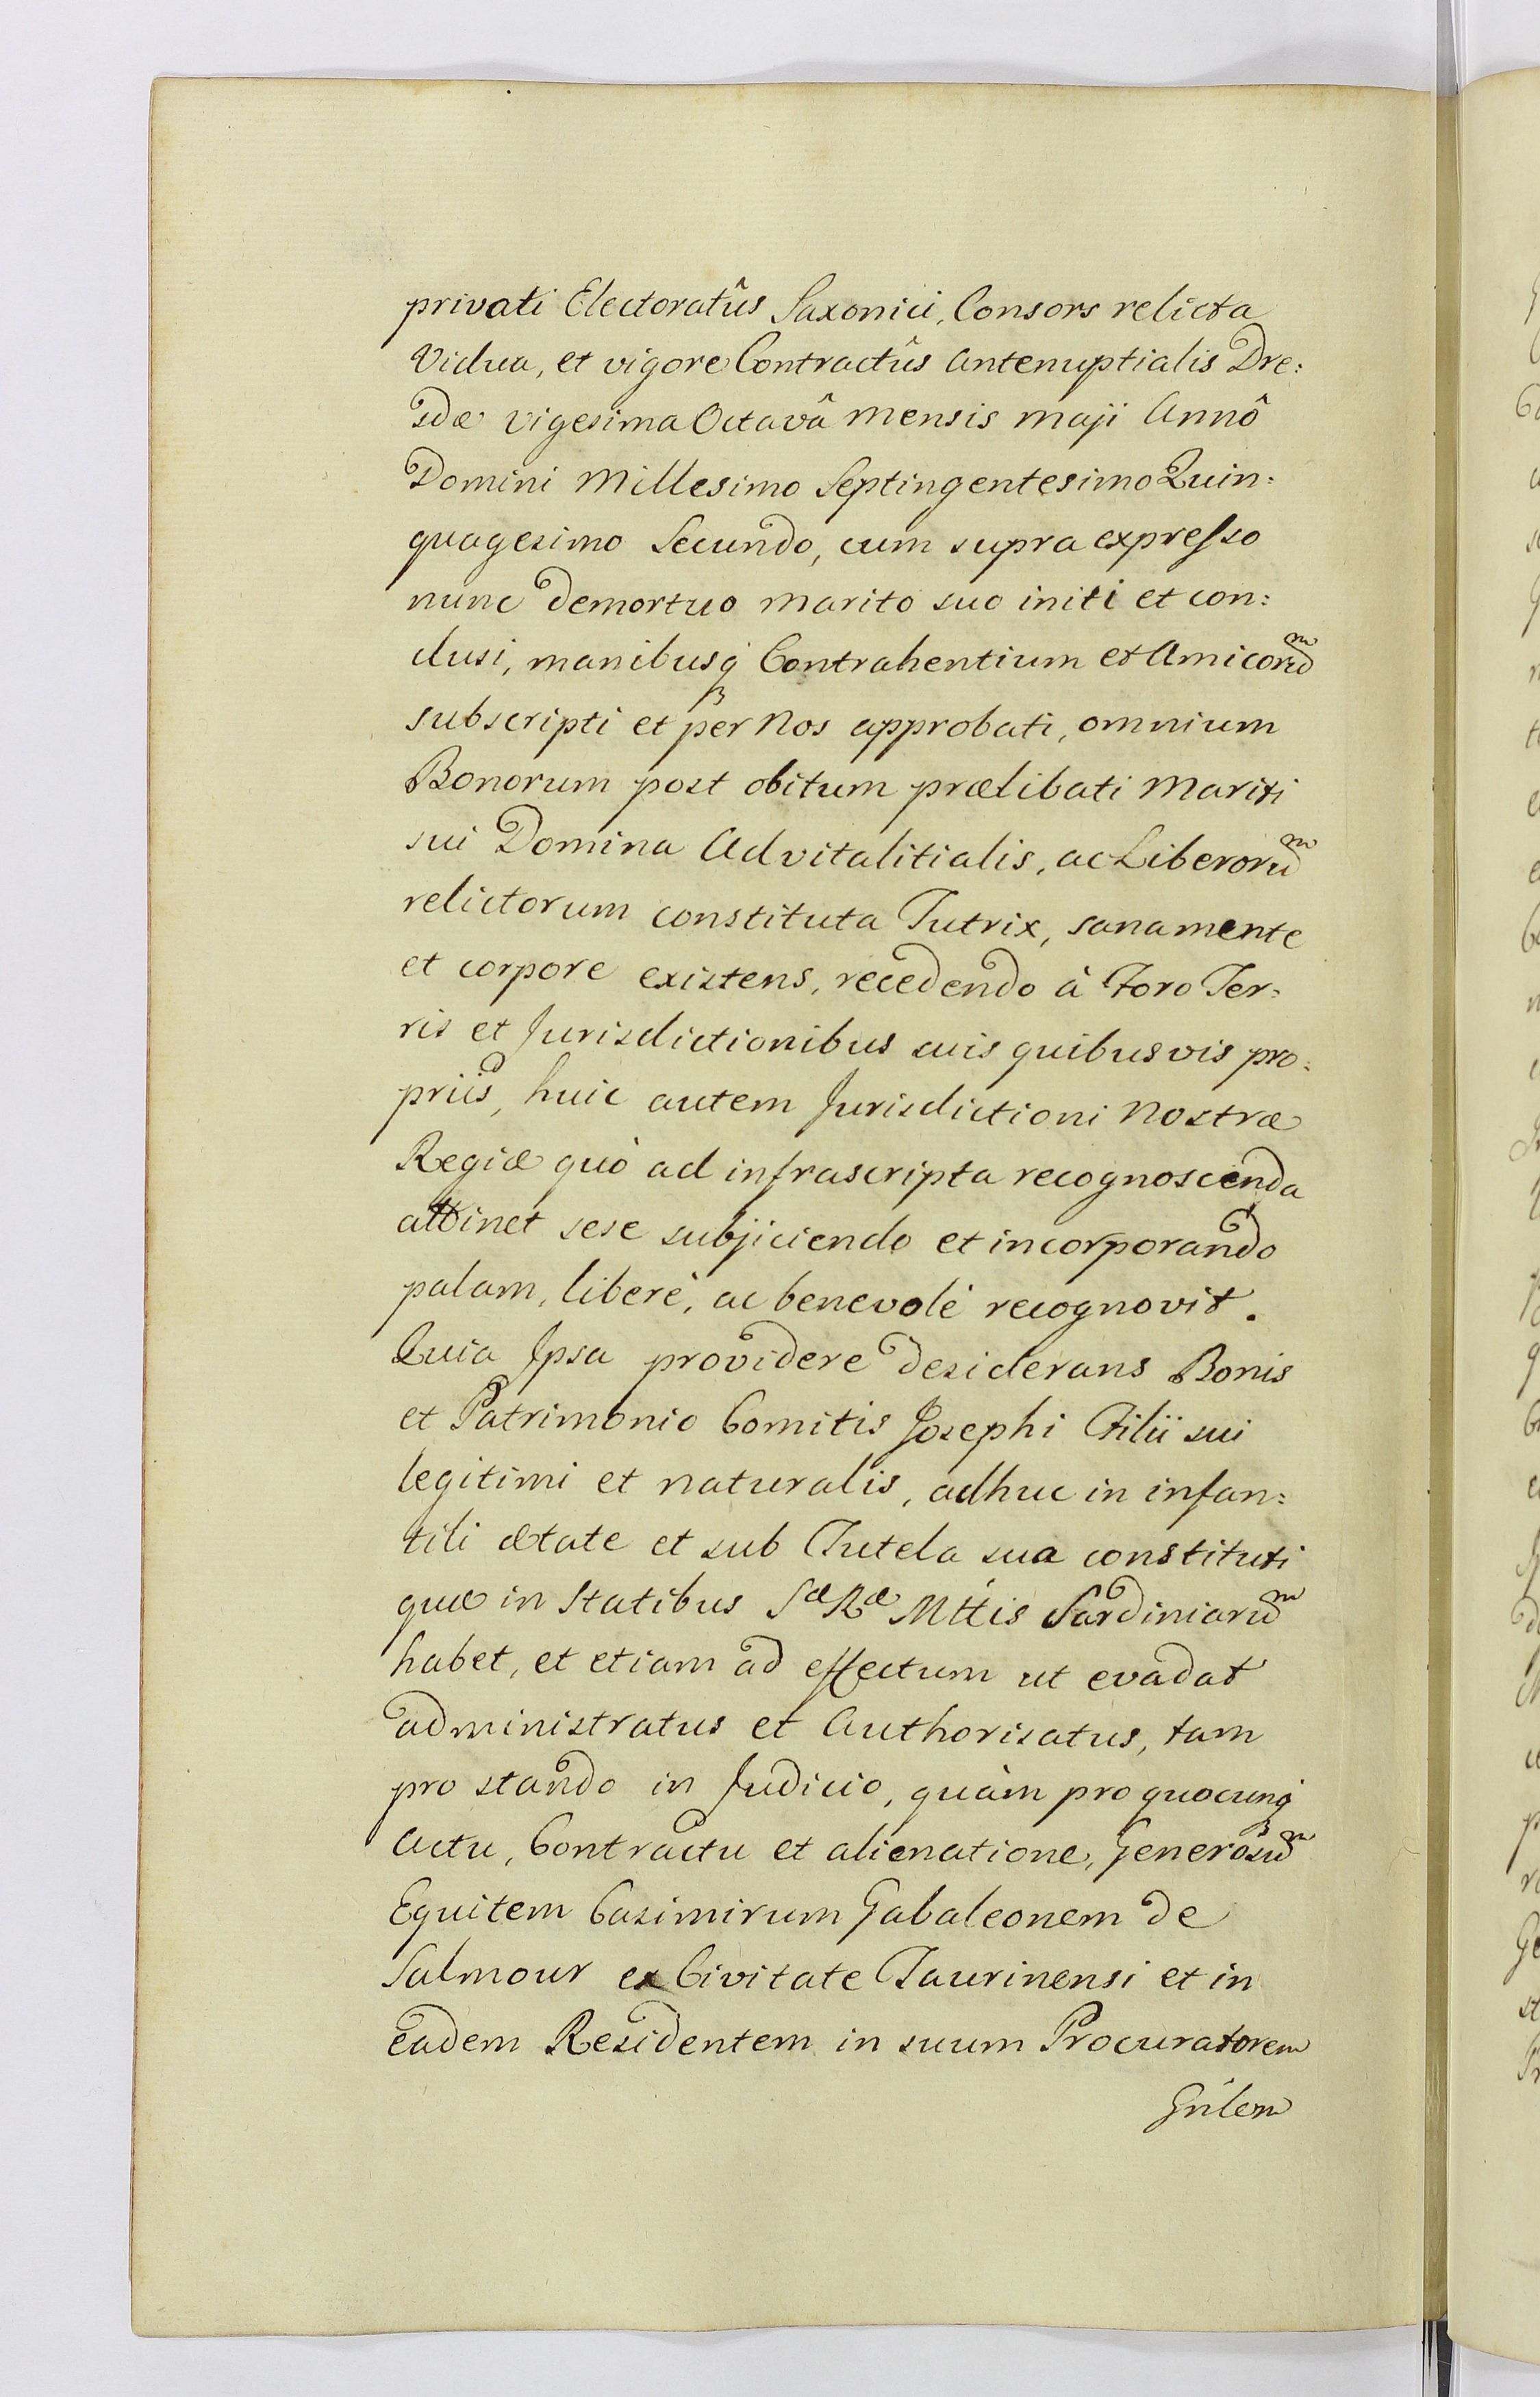 privati Electoratûs Saxonici, Consors relicta
Vidua, et vigore Contractûs Antenuptialis Dre:
sdæ vigesima Octavâ mensis maji Annô
Domini Millesimo Septingentesimo Quin:
quagesimo Secundo, cum supra expresso
nunc demortuo marito suo initi et con:
clusi, manibusq́ Contrahentium et Amicorũ
subscripti et per Nos approbati, omnium
Bonorum post obitum prælibati Mariti
sui Domina Advitalitialis, ac Liberorũ
relictorum constituta Tutrix, sana mente
et corpore existens, recedendo à Foro Ter:
ris et Jurisdictionibus suis quibusvis pro:
priis, huic autem Jurisdictioni Nostræ
Regiæ quò ad infrascripta recognoscenda
attinet sese subjiciendo et incorporando
palam, liberè, ac benevolè recognovit.
Quia Ipsa providere desiderans Bonis
et Patrimonio Comitis Josephi Filii sui
legitimi et naturalis, adhuc in infan:
tili ætate et sub Tutela sua constituti
quæ in Statibus Sæ Ræ Mttis Sardiniarũ
habet, et etiam ad effectum ut evadat
administratus et Authorisatus, tam
pro stando in Judicio, quàm pro quocunq́
Actu, Contractu et alienatione, Generosũ
Equitem Casimirum Gabaleonem de
Salmour ex Civitate Taurinensi et in
eadem Residentem in suum Procuratorem
Gn̄lem